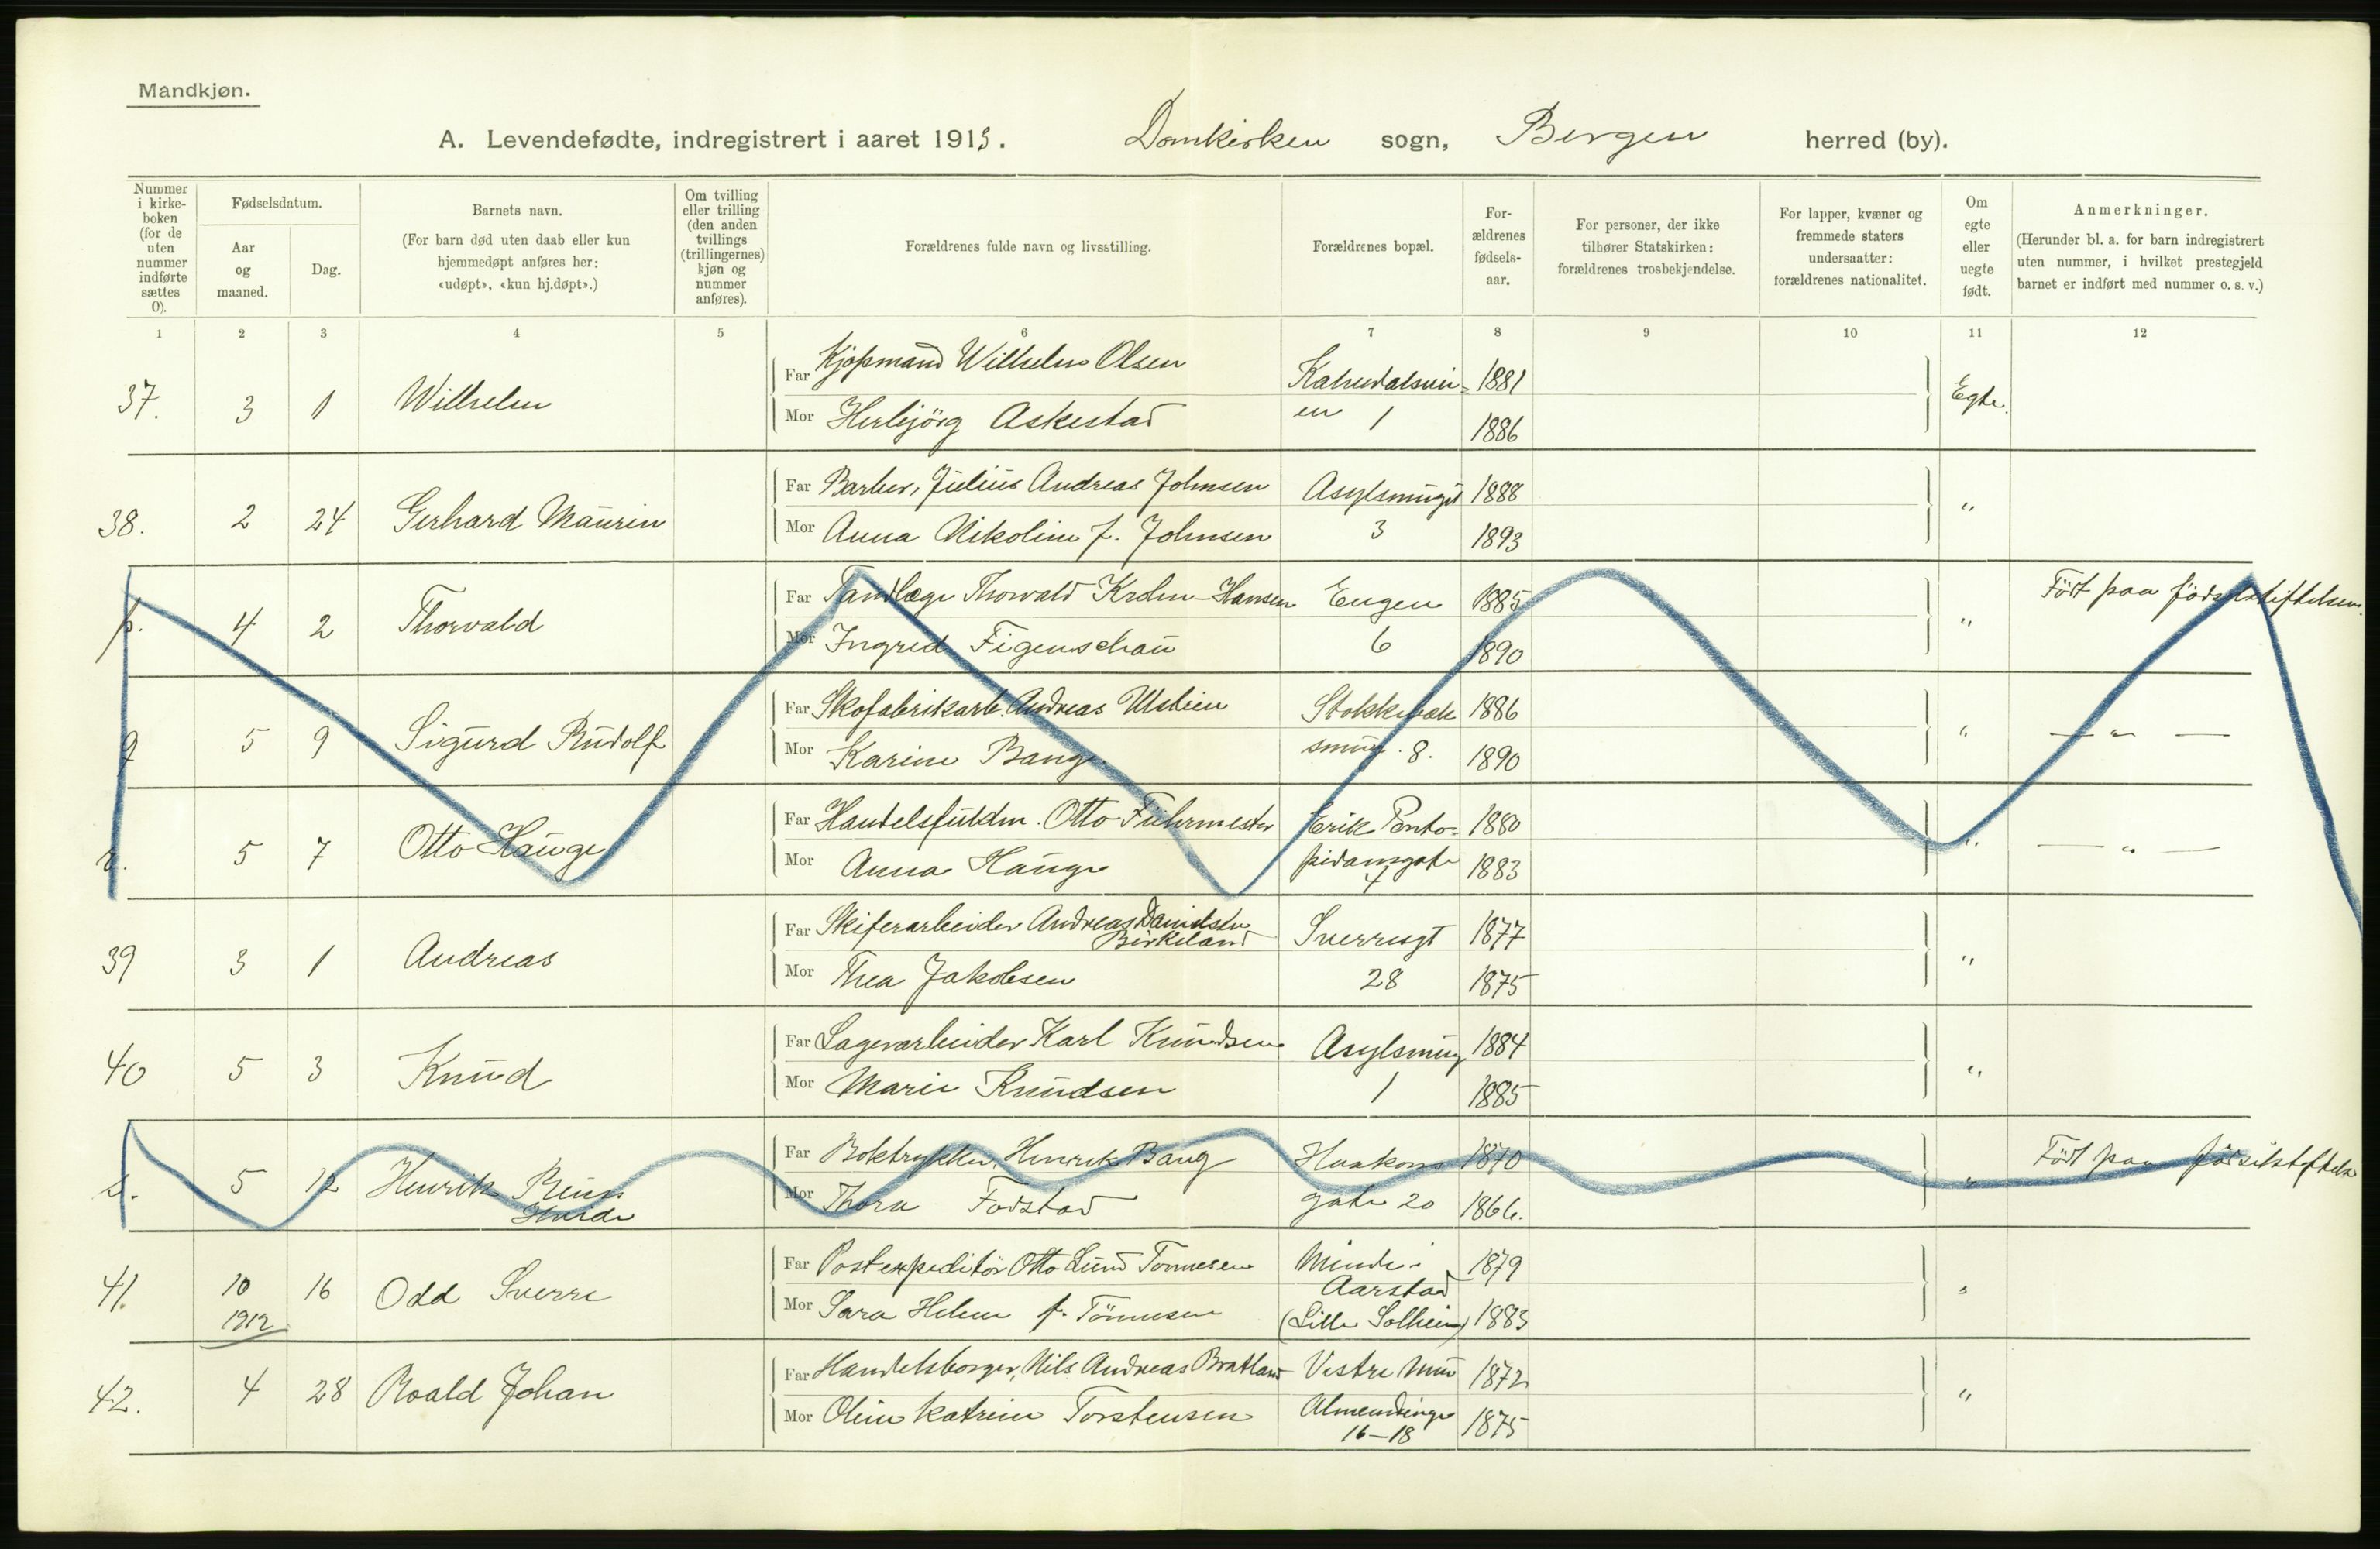 Mandkjøn.
A. Levendefødte, indregistrert i aaret 1913. Domkirken sogn, Bergen herred (by).
Nummer i kirke-boken (for de uten nummer indførte sættes 0).
Fødselsdatum.
Aar og maaned.
Dag.
Barnets navn.
(For barn død uten daab eller kun hjemmedøpt anføres her: «udøpt», «kun hj.døpt».)
Om tvilling eller trilling (den anden tvillings (trillingernes) kjøn og nummer anføres).
Forældrenes fulde navn og livsstilling.
Forældrenes bopæl.
For-ældrenes fødsels-aar.
For personer, der ikke tilhører Statskirken: forældrenes trosbekjendelse.
For lapper, kvæner og fremmede staters undersaatter: forældrenes nationalitet.
Om egte eller uegte født.
Anmerkninger.
(Herunder bl. a. for barn indregistrert uten nummer, i hvilket prestegjeld barnet er indført med nummer o. s. v.)
1 2 3 4 5 6 7 8 9 10 11 12
37. 3 1 Wilhelm Far Kjøpmand Wilhelm Olsen Kalvedalsvei= 1881 Egte.
Mor Herbjörg Askestad en 1 1886
38. 2 24 Gerhard Maurin Far Barber, Julius Andreas Johnsen Asylsmuget 1888 "
Mor Anna Nikoline f. Johnsen 3 1893
p. 4 2 Thorvald Far Tandlæge Thorvald Krohn-Hansen Engen 1885 " Født paa fødselsstiftelsen.
Mor Ingred Figenschau 6 1890
q 5 9 Sigurd Rudolf Far Skofabrikarb. Andreas Utstein 1886 " — " —
Mor Karine Bange smug. 8. 1890
r. 5 7 Otto Hauge Far Handelsfuldm. Otto Führmester Erik Ponto= 1880 " — " —
Mor Anna Hauge pidansgate 4 1883
39 3 1 Andreas Far Skiferarbeider Andreas Danielsen Birkeland Sverresgt 1877 "
Mor Thea Jakobsen 28 1875
40 5 3 Knud Far Lagerarbeider Karl Knudsen Asylsmug 1884 "
Mor Marie Knudsen 1 1885
s. 5 12 Henrik Far Boktrykker, Henrik Bang Haakons 1870 " Født paa fødselsstiftelse
Mor Thora Fodstad gate 20 1866.
41. 10 1912 16 Odd Sverre Far Postexpeditör Otto Lund Tönnesen Minde i 1879 "
Mor Sara Helene f. Tönnesen Aarstad (Lille Solheim) 1883
42. 4 28 Roald Johan Far Handelsborger, Nils Andreas Bratland Vestre Mur 1872 "
Mor Oline Katrine Torstensen Almendinge 16–18 1875